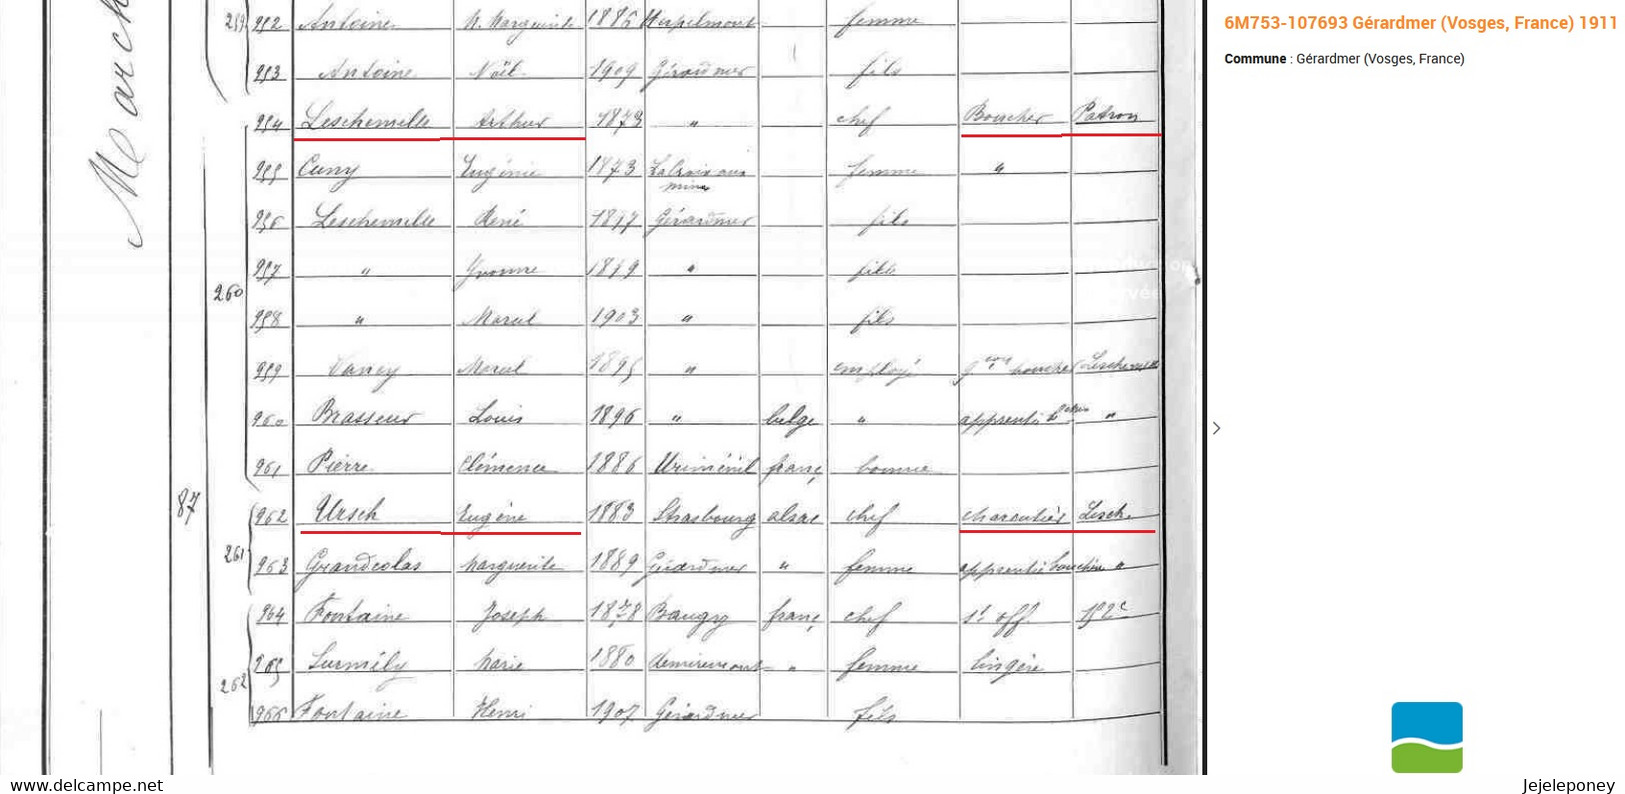 6M753-107693 Gérardmer (Vosges, France) 1911
Commune : Gérardmer (Vosges, France)
March
259 952 Antoine M. Marguerite 1886 femme
953 Antoine Noël 1909 Gérardmer fils
954 Leschemelle Arthur 1873 " chef Boucher Patron
955 Cuny Eugénie 1873 La Croix aux mines femme "
956 Leschemelle René 1897 Gérardmer fils
260 957 " Yvonne 1899 " fille
958 " Marcel 1903 " fils
959 Vancy Marcel 1895 " employé gçon boucher Leschemelle
960 Brasseur Louis 1896 " belge " apprenti "
961 Pierre Clémence 1886 Uriménil franç bonne
87
962 Ursch Eugène 1883 Strasbourg alsac chef charcutier Lesch.
261 963 Grandcolas Marguerite 1889 Gérardmer " femme "
964 Fontaine Joseph 1878 Baugy franç chef 152e
262 965 Surmély Marie 1880 Remiremont " femme lingère
966 Fontaine Henri 1907 Gérardmer fils
www.delcampe.net
Jejeleponey